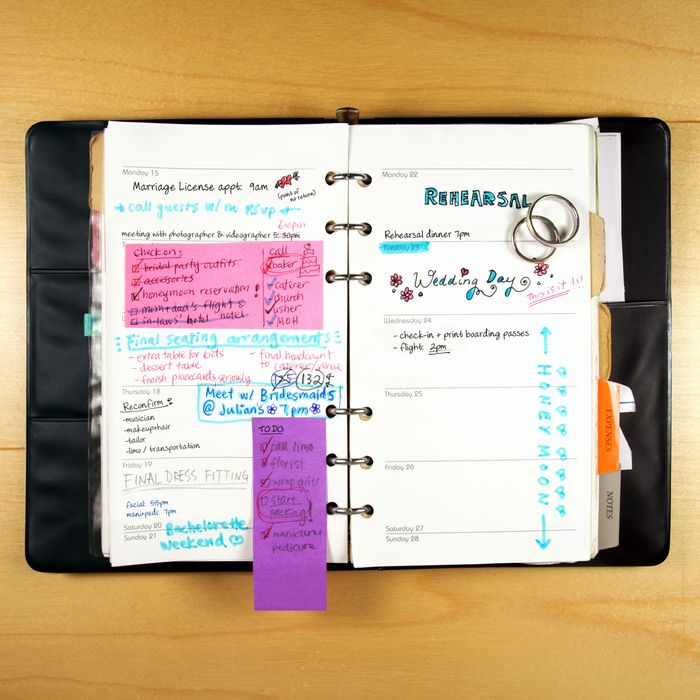 Monday 15
Marriage License appt: 9am
(point of no return)
call guests w/ no RSVP
6:00pm
meeting with photographer & videographer 5:30pm
check on:
bridal party outfits
accesories
honeymoon reservation!
mom + dad's flight &
in-laws' hotel
call
baker
caterer
church
usher
MOH
Final seating arrangements
- extra table for kids
- dessert table
- finish placecards seriously
- final headcount
to caterer/venue
125 132
Thursday 18
Meet w/ Bridesmaids
@ Julian's 7pm
Reconfirm
-musician
-makeup+hair
-tailor
-limo / transportation
Friday 19
FINAL DRESS FITTING
facial: 515pm
mani+pedi: 7pm
Saturday 20
Sunday 21
Bachelorette
weekend
TO DO:
call limo
florist
wrap gifts
start
packing!
manicure +
pedicure
Monday 22
REHEARSAL
Rehearsal dinner 7pm
Tuesday 23
Wedding Day
This is it!!!
Wednesday 24
- check-in + print boarding passes
- flight: 2pm
HONEYMOON
Thursday 25
Friday 26
Saturday 27
Sunday 28
EXPENSES
NOTES